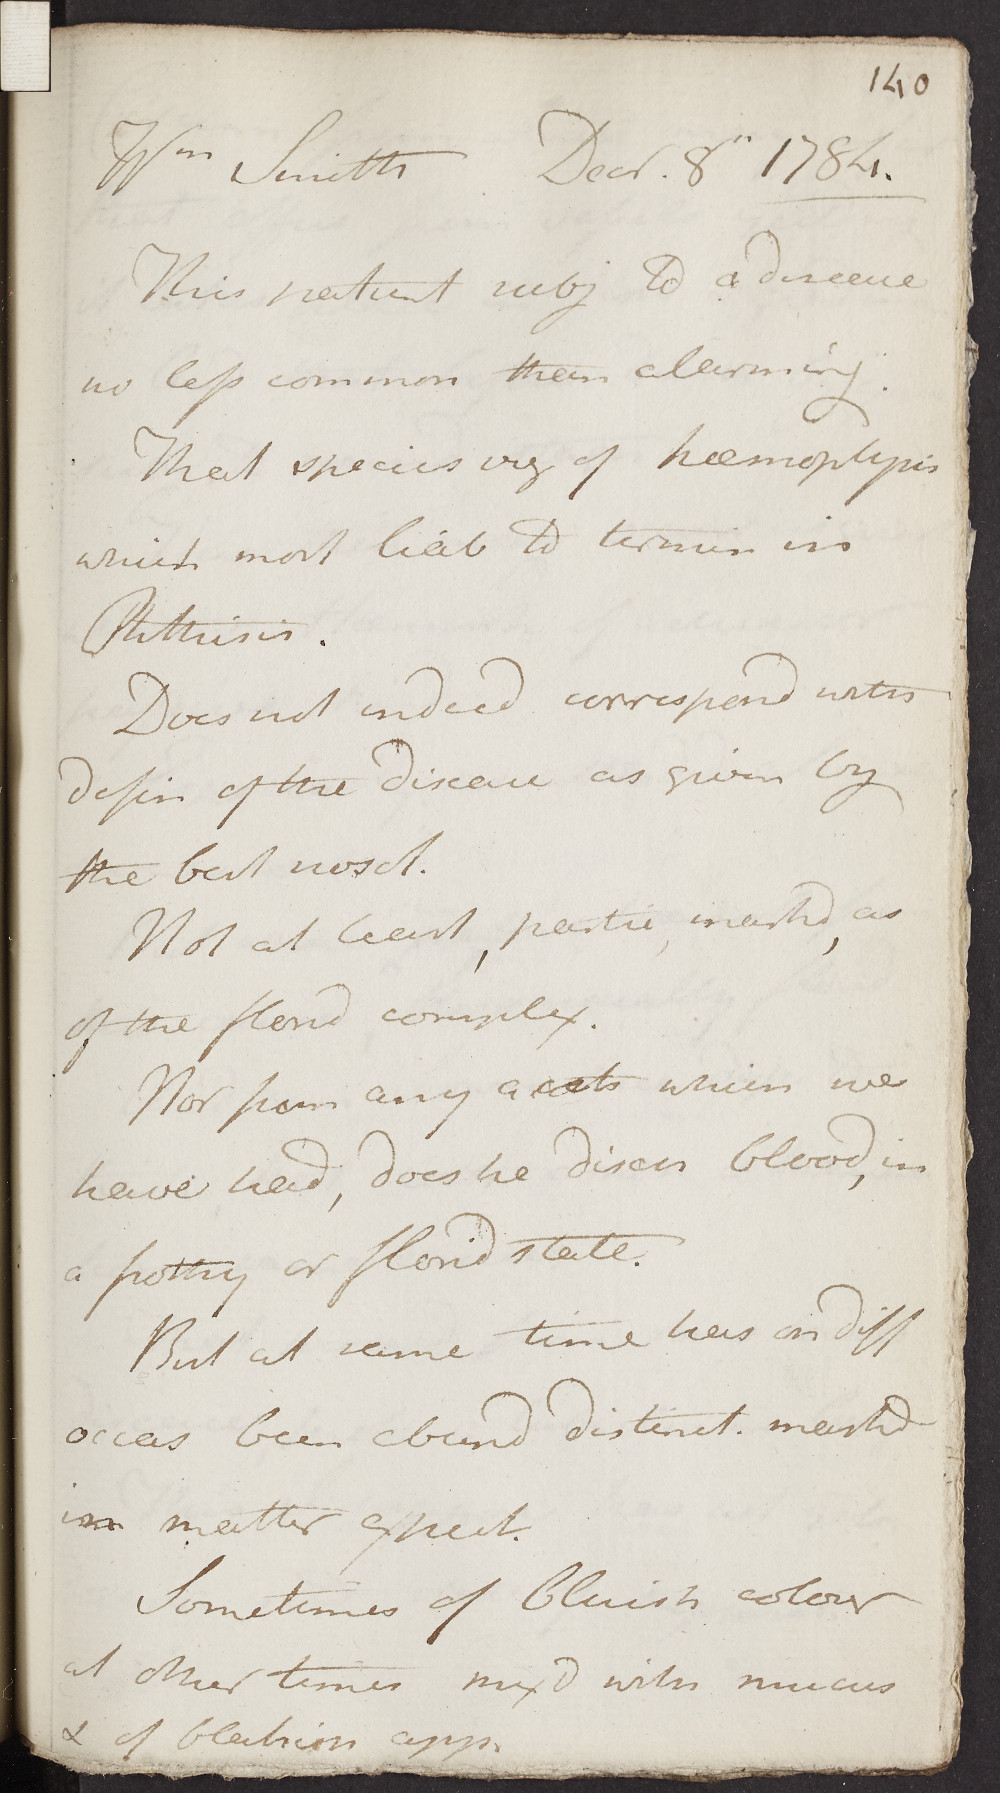 140
Wm Smith Decr. 8" 1784.
This patient subj to a disease
no less common than alarming.
That species viz of hæmoptysis
which most liab to termin in
Phthisis.
Does not indeed correspond with
defin of the disease as given by
the best nosol.
Not at least, partic, markd, as
of the florid complex.
Nor from any accts which we
have had, does he discer blood, in
a frothy or florid state.
But at same time has on diff
occas been abund distinct. markd
in matter expect.
Sometimes of bluish colour
at other times mixd with mucus
& of blakish app.